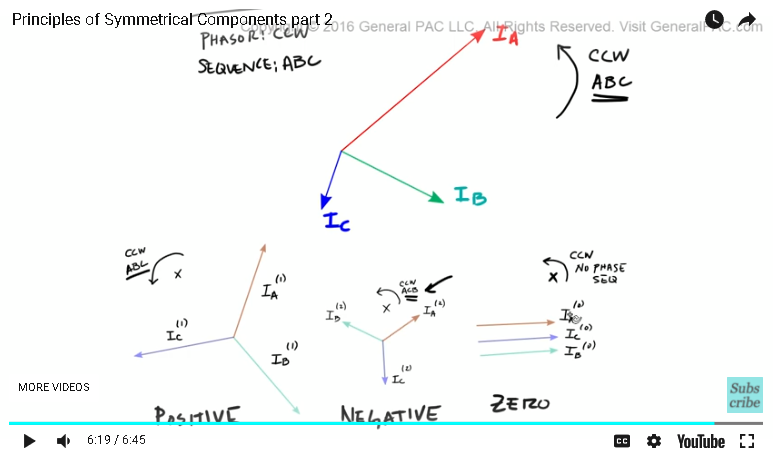 Principles of Symmetrical Components part 2
Copyright © 2016 General PAC LLC, All Rights Reserved. Visit GeneralPAC.com
PHASOR: CCW
SEQUENCE; ABC
IA
CCW
ABC
IB
IC
CCW
ABC
X
IA(1)
IC(1)
IB(1)
POSITIVE
CCW
ACB
X
IB(2)
IA(2)
IC(2)
NEGATIVE
CCW
NO PHASE
SEQ
X
IA(0)
IC(0)
IB(0)
ZERO
MORE VIDEOS
Subs
cribe
6:19 / 6:45
CC
YouTube